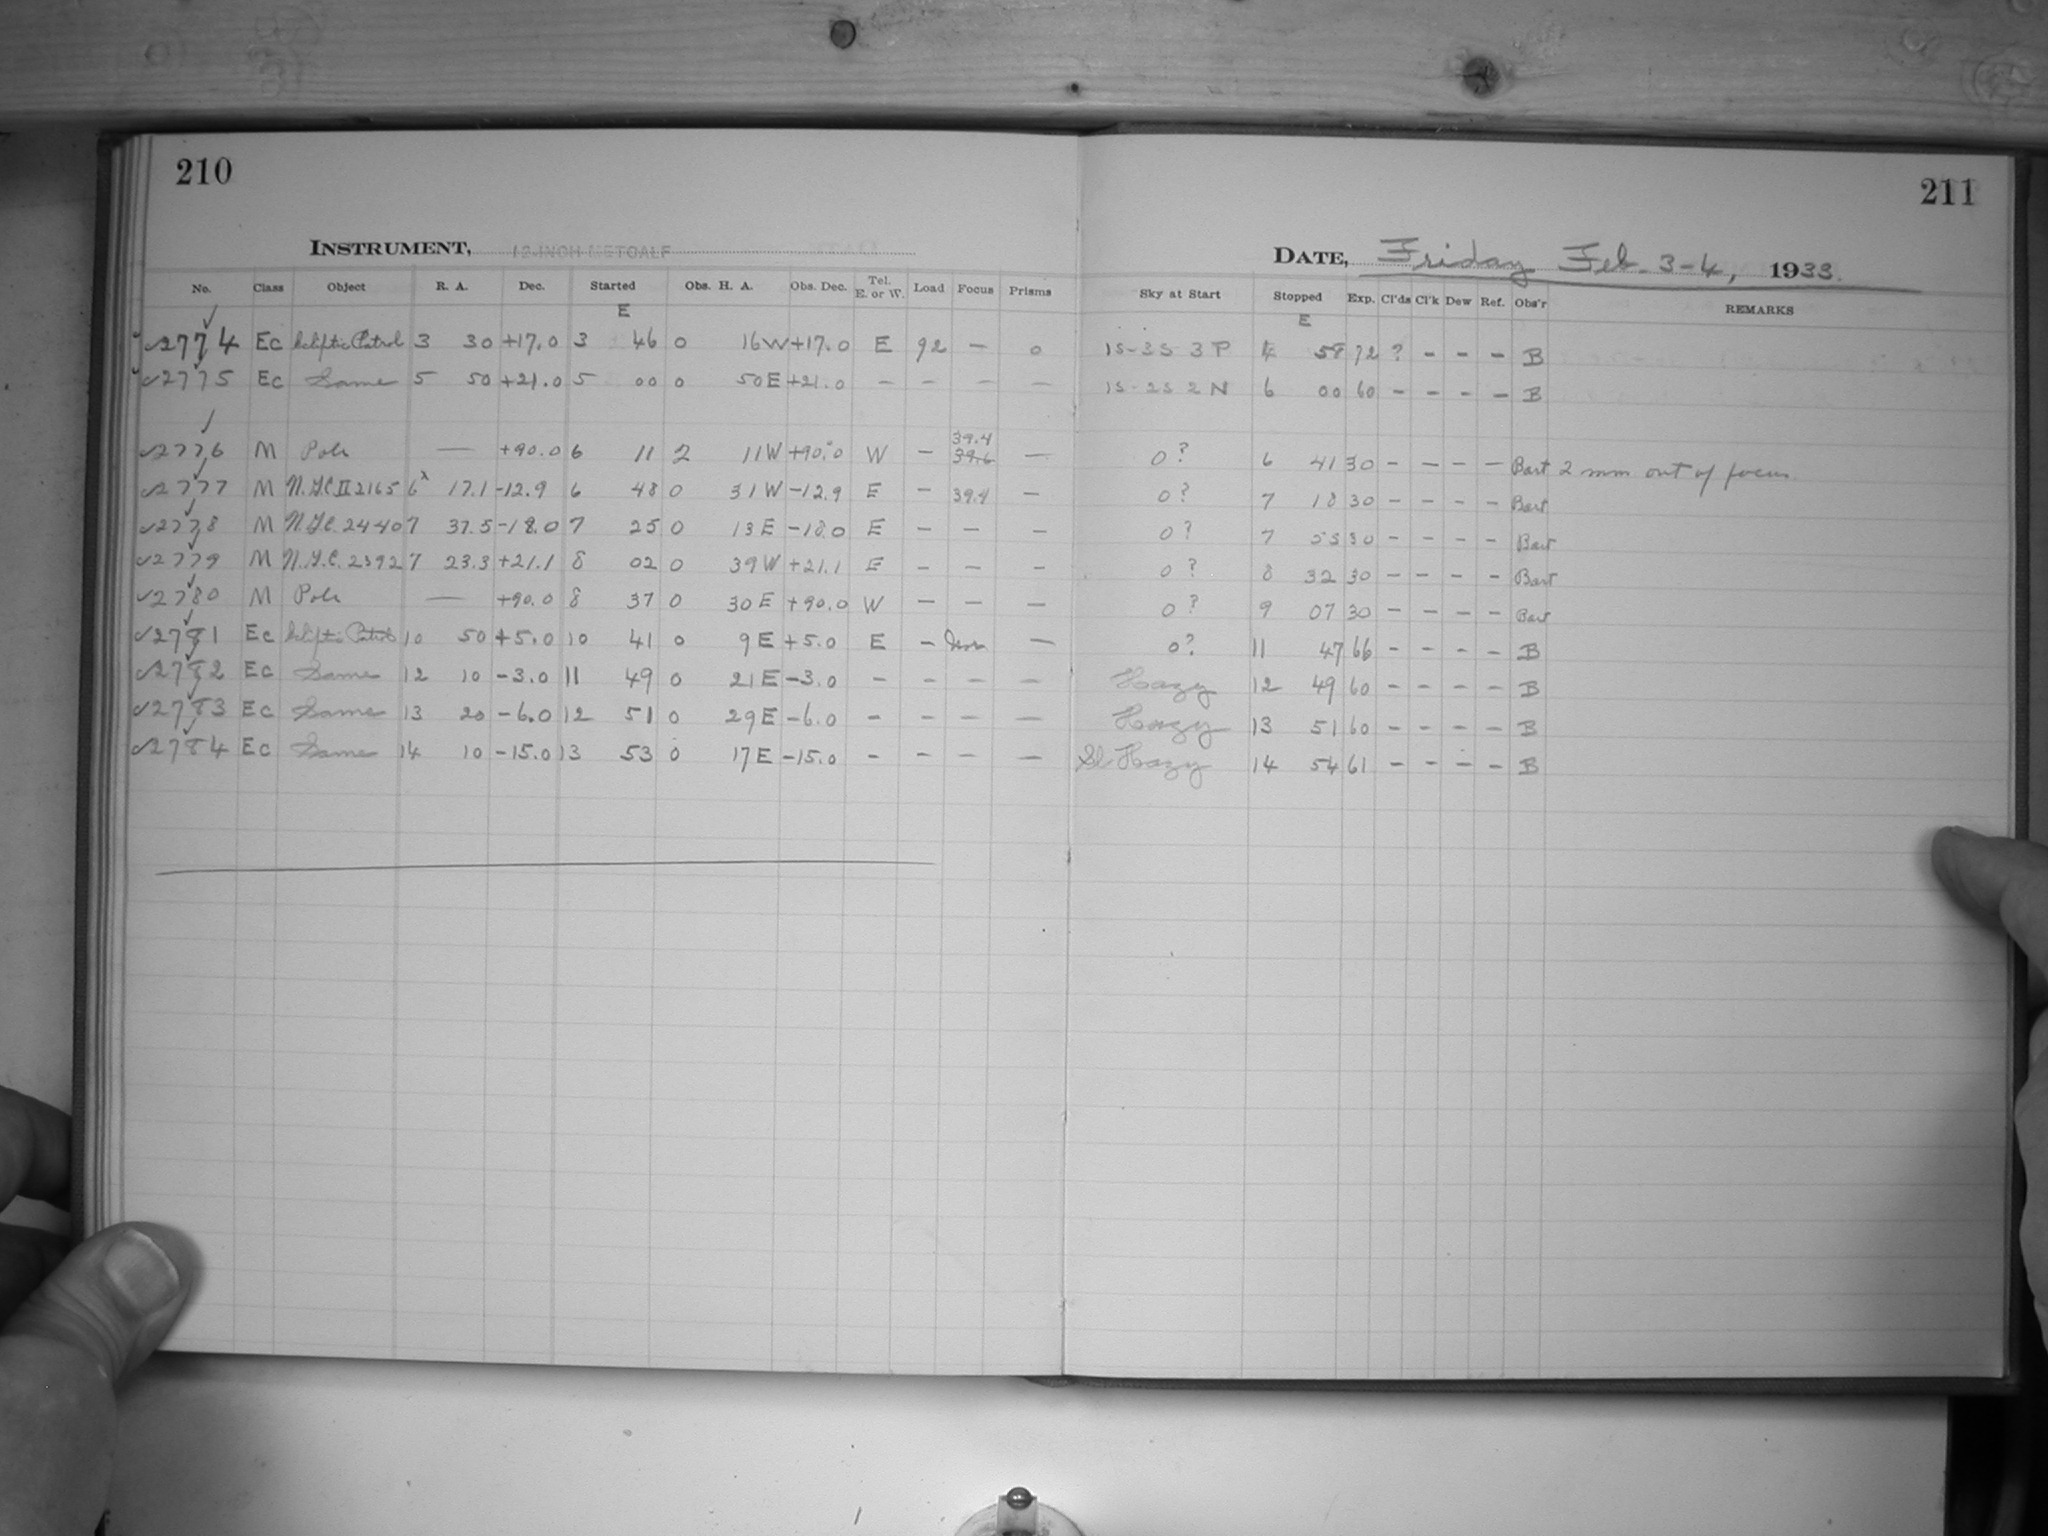 210
211
INSTRUMENT, 12-INCH METCALF
DATE, Friday Feb. 3-4, 1933.
No. Class Object R. A. Dec. Started Obs. H. A. Obs. Dec. Tel. E. or W. Load Focus Prisms Sky at Start Stopped Exp. Cl'ds Cl'k Dew Ref. Obs'r REMARKS
E E
2774 Ec Ecliptic Patrol 3 30 +17.0 3 46 0 16 W +17.0 E 92 — 0 1S-3S 3 P 4 58 72 ? - - - B
2775 Ec Same 5 50 +21.0 5 00 0 50 E +21.0 — — — — 1S-2S 2 N 6 00 60 - - - - B
39.4
2776 M Pole — +90.0 6 11 2 11 W +90.0 W — 39.6 — 0? 6 41 30 - - - - Bart 2 mm out of focus
2777 M N.G.C. II 2165 6 17.1 -12.9 6 48 0 31 W -12.9 E — 39.4 — 0? 7 18 30 - - - - Bart
2778 M N.G.C. 2440 7 37.5 -18.0 7 25 0 13 E -18.0 E — — — 0? 7 55 30 - - - - Bart
2779 M N.G.C. 2392 7 23.3 +21.1 8 02 0 39 W +21.1 E — — — 0? 8 32 30 - - - - Bart
2780 M Pole — +90.0 8 37 0 30 E +90.0 W — — — 0? 9 07 30 - - - - Bart
2781 Ec Ecliptic Patrol 10 50 +5.0 10 41 0 9 E +5.0 E — — 0? 11 47 66 - - - - B
2782 Ec Same 12 10 -3.0 11 49 0 21 E -3.0 - - - — Hazy 12 49 60 - - - - B
2783 Ec Same 13 20 -6.0 12 51 0 29 E -6.0 - - - — Hazy 13 51 60 - - - - B
2784 Ec Same 14 10 -15.0 13 53 0 17 E -15.0 - - - — Sl. Hazy 14 54 61 - - - - B